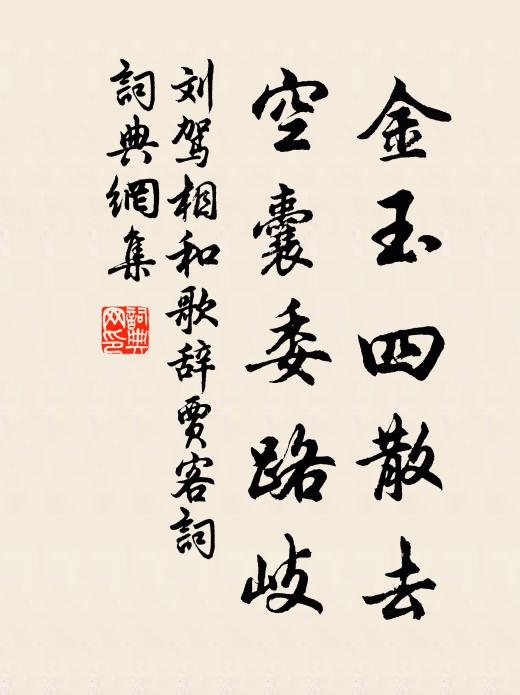 金玉四散去
空囊委路岐
刘驾相和歌辞贾客詞
詞典網集
詞典网印